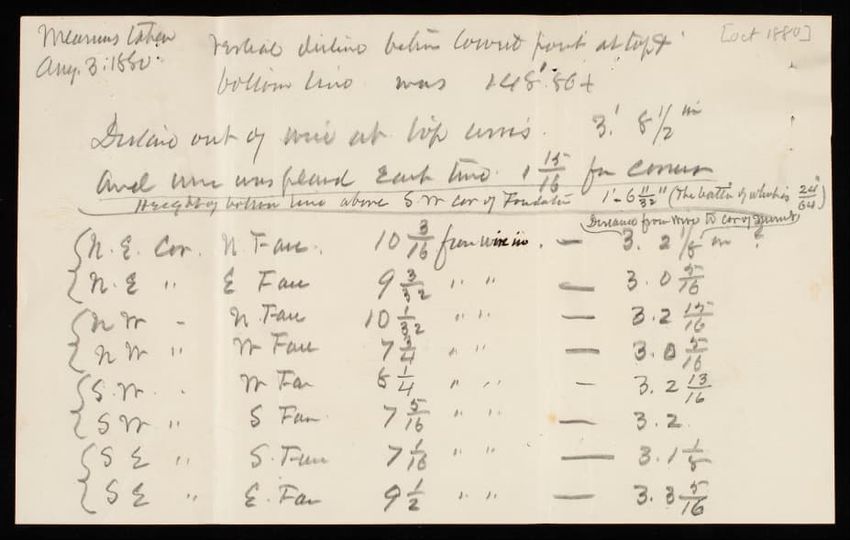 Measures taken
Aug. 3. 1880.
[Oct 1880]
Vertical distance between lowest point at top &
bottom line was 148'.86+
Distance out of wire at top arris. 3.' 8 1/2 in
and wire was placed each time 1 15/16 from corner
Height of bottom line above S.W cor of Foundation 1'-6 11/32" (the batter of which is 24/64")
Distance from wire to cor of
N.E. Cor. N Face. 10 3/16 from wire in. — 3. 2 1/8 in ?
N.E " E Face 9 3/32 " " — 3.0 5/16
N W - N Face 10 1/32 " " — 3.2 15/16
N W " W Face 7 3/4 " " — 3.0 5/16
S.W. . W Fac 8 1/4 " " - 3.2 13/16
S W " S Fac 7 5/16 " " — 3.2.
S E " S. Face 7 1/16 " " — 3.1 1/8
S E " E. Fac 9 1/2 " " — 3.3 5/16